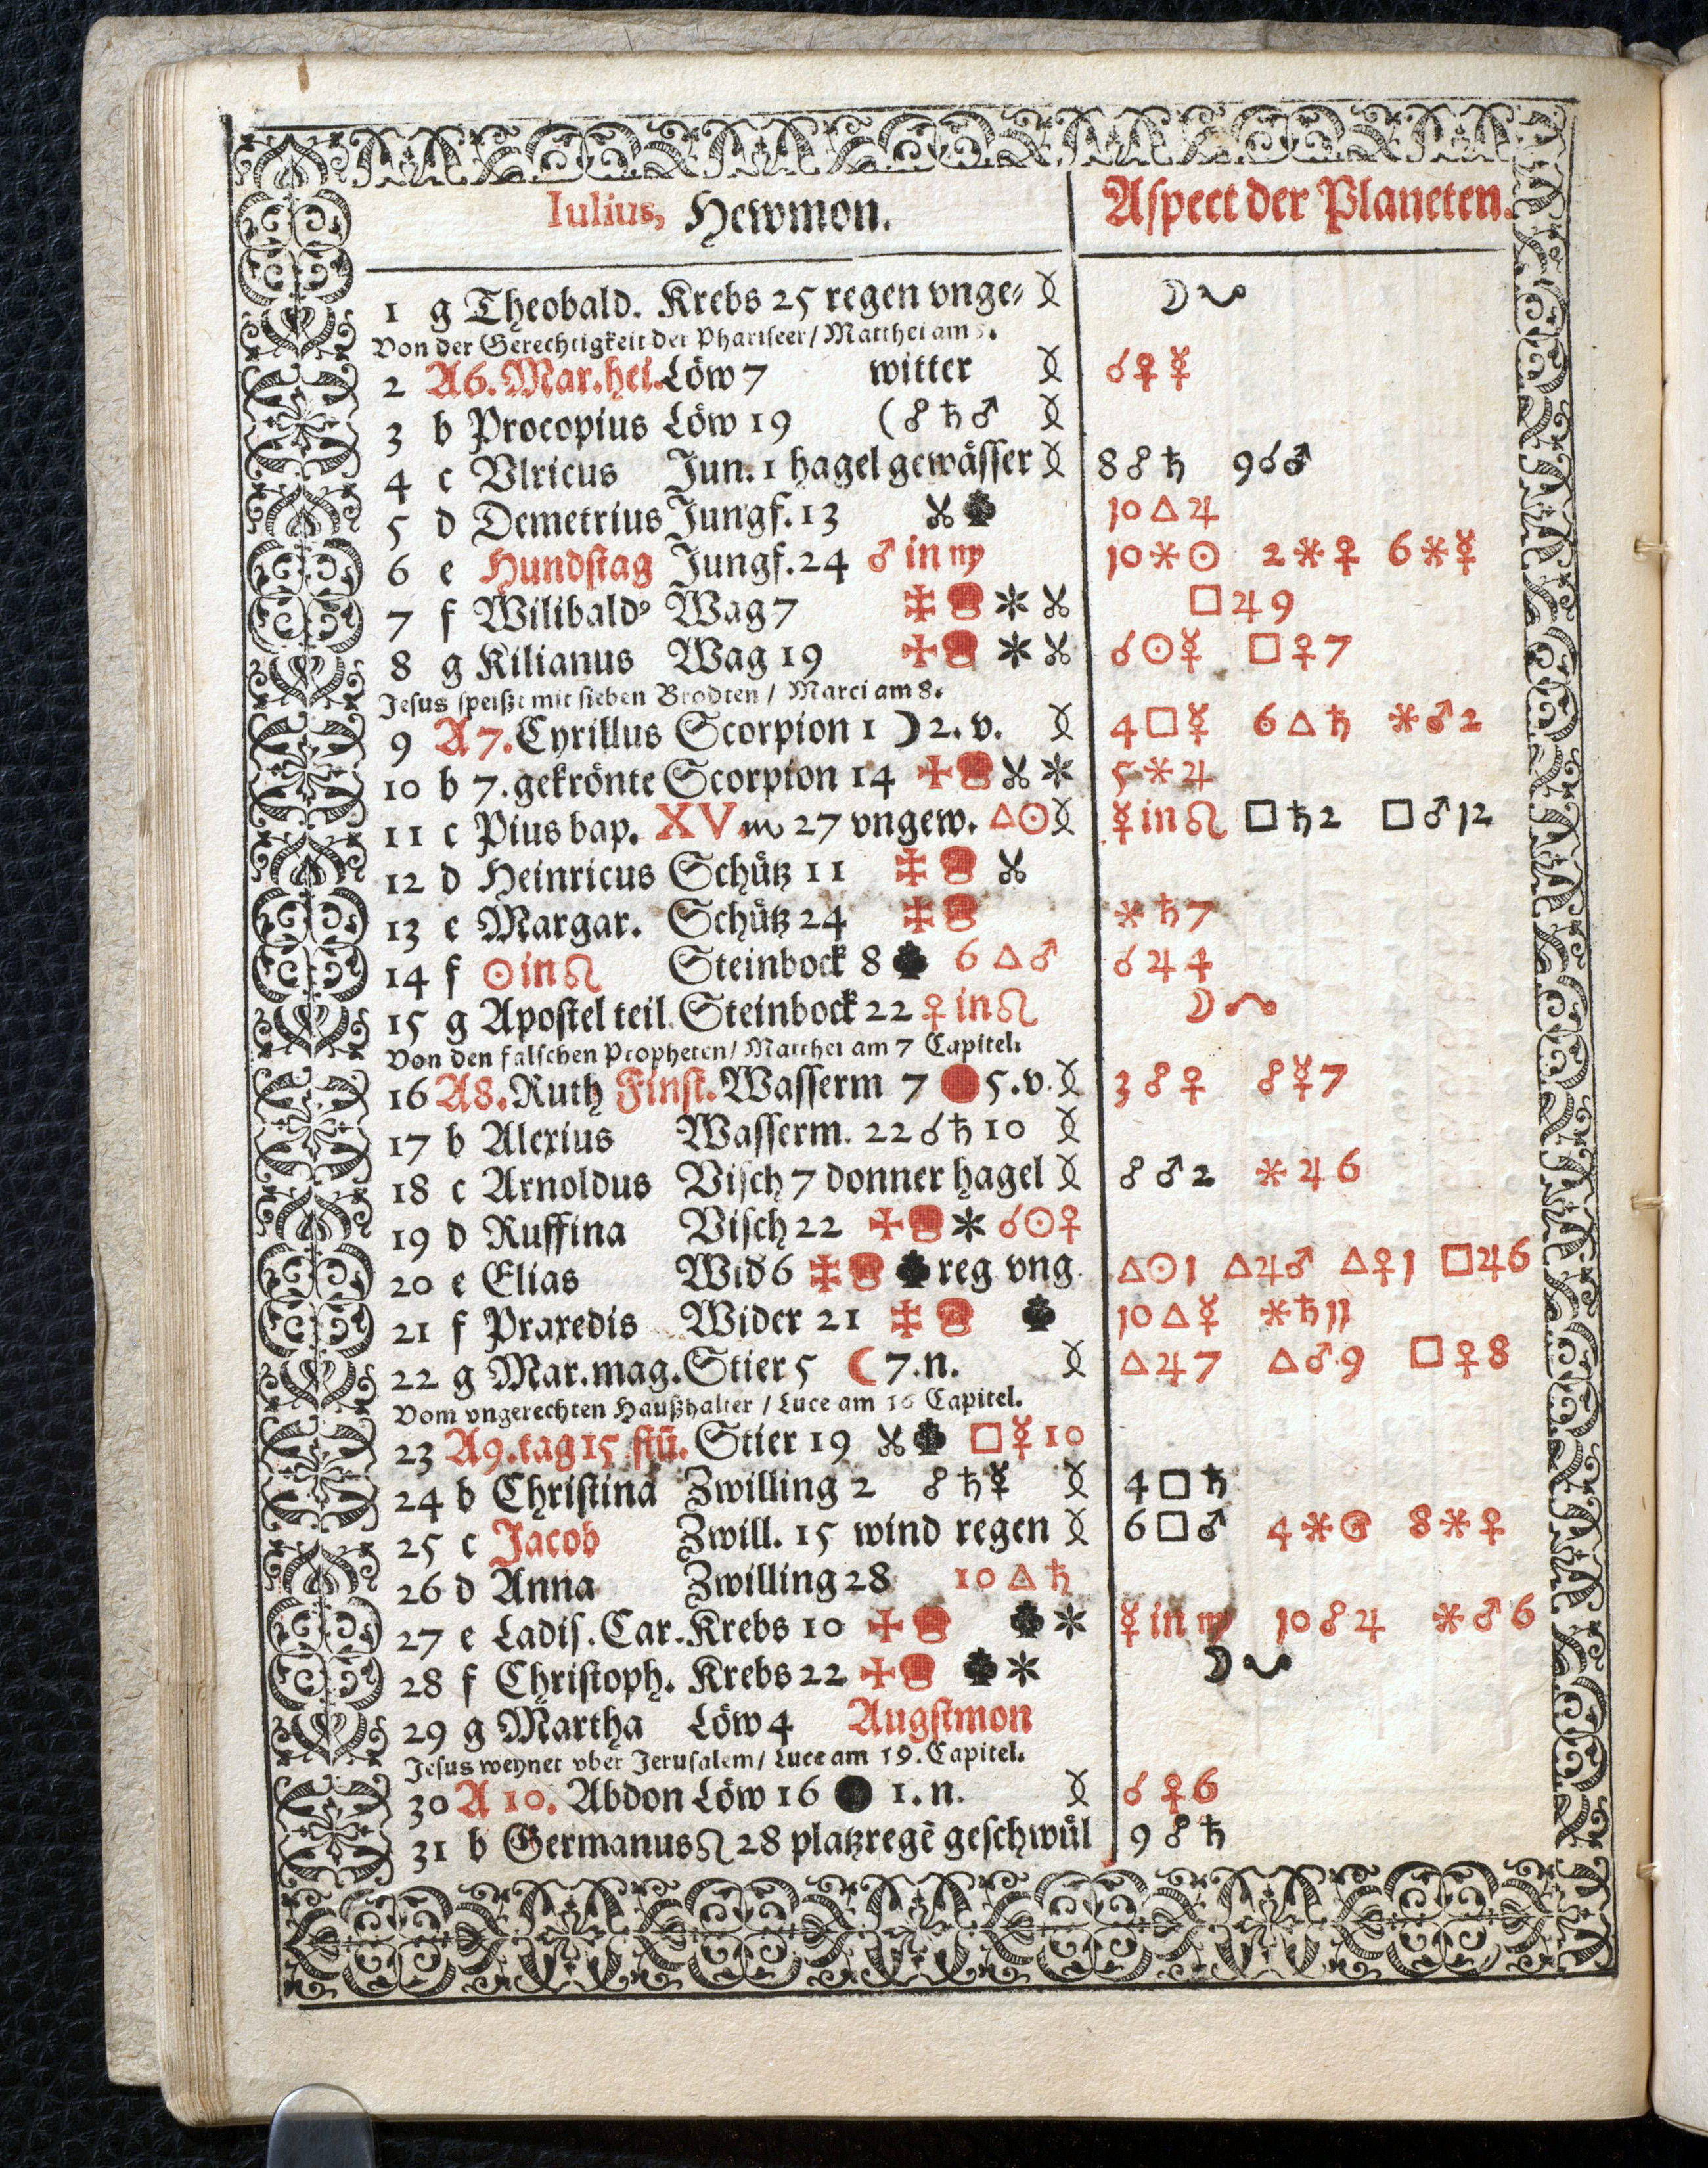 Iulius, Hewmon.
Aspect der Planeten.
1 g Theobald. Krebs 25 regen vnge⸗ ☽
Von der Gerechtigkeit der Phariseer/ Matthei am 5.
2 A6. Mar. hei. Löw 7 witter ☌♀☿
3 b Procopius Löw 19 (☍♄♂
4 c Vlricus Jun. 1 hagel gewässer 8☍♄ 9☌♂
5 d Demetrius Jungf. 13 10△♃
6 e Hundstag Jungf. 24 ♂ in ♍ 10✶☉ 2✶♀ 6✶☿
7 f Wilibald⁹ Wag 7 □♃9
8 g Kilianus Wag 19 ☌☉☿ □♀7
Jesus speißt mit sieben Brodten / Marci am 8.
9 A 7. Cyrillus Scorpion 1 ☽ 2. v. 4□☿ 6△♄ ✶♂2
10 b 7. gekrönte Scorpion 14 5✶♃
11 c Pius bap. XV ♏ 27 vngew. △☉ ☿ in ♌ □♄2 □♂12
12 d Heinricus Schütz 11
13 e Margar. Schütz 24 ✶♄7
14 f ☉ in ♌ Steinbock 8 6△♂ ☌♃4
15 g Apostel teil. Steinbock 22 ♀ in ♌ ☽
Von den falschen Propheten/ Matthei am 7 Capitel.
16 A8. Ruth Finst. Wasserm 7 5. v. 3☍♀ ☍☿7
17 b Alexius Wasserm. 22 ☌♄10
18 c Arnoldus Visch 7 donner hagel ☍♂2 ✶♃6
19 d Ruffina Visch 22 ☌☉♀
20 e Elias Wid 6 reg vng. △☉1 △♃♂ △♀1 □♃6
21 f Praxedis Wider 21 10△☿ ✶♄11
22 g Mar. mag. Stier 5 ☾ 7. n. △♃7 △♂9 □♀8
Vom vngerechten Haußhalter / Luce am 16 Capitel.
23 A9. tag 15 stū. Stier 19 □☿10
24 b Christina Zwilling 2 ☍♄☿ 4□♄
25 c Jacob Zwill. 15 wind regen 6□♂ 4✶☉ 8✶♀
26 d Anna Zwilling 28 10△♄
27 e Ladis. Car. Krebs 10 ☿ in ♍ 10☍♃ ✶♂6
28 f Christoph. Krebs 22 ☽
29 g Martha Löw 4 Augstmon
Jesus weynet vber Jerusalem/ Luce am 19. Capitel.
30 A 10. Abdon Löw 16 ● 1. n. ☌♀6
31 b Germanus ♌ 28 platzregē geschwül 9☍♄